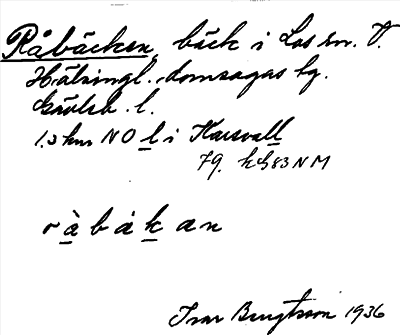 Råbäcken, bäck i Los sn. V.
Hälsingl. domsagas tg.
Gävleb. l.
1.3 km NO l i Karsvall
79. kG83NM
r à b á k a n
Ivar Bengtsson 1936